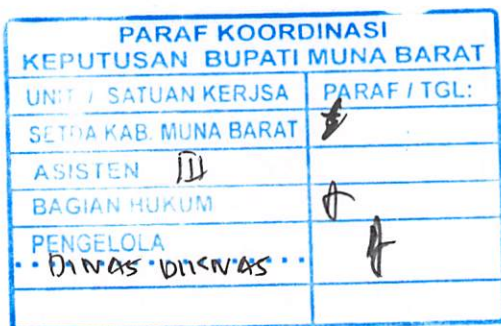 PARAF KOORDINASI
KEPUTUSAN BUPATI MUNA BARAT
UNIT / SATUAN KERJSA PARAF / TGL:
SETDA KAB. MUNA BARAT
ASISTEN III
BAGIAN HUKUM
PENGELOLA
DINAS DIKNAS